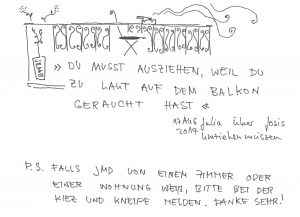 » DU MUSST AUSZIEHEN, WEIL DU
ZU LAUT AUF DEM BALKON
GERAUCHT HAST «
17 AUG
2017
Julia über Josis
Umziehenmüssen
P.S. FALLS JMD VON EINEM ZIMMER ODER
EINER WOHNUNG WEIß, BITTE BEI DER
KIEZ UND KNEIPE MELDEN. DANKE SEHR!